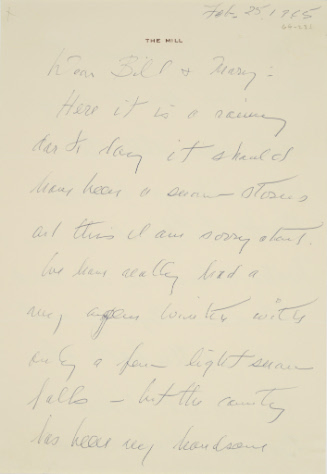 Feb. 25, 1965
THE MILL
Dear Bill & Mary:
Here it is a rainy
dark day it should
have been a snow-storm
and this I am sorry about.
We have really had a
very open winter with
only a few light snow
falls – but the country
has been very handsome